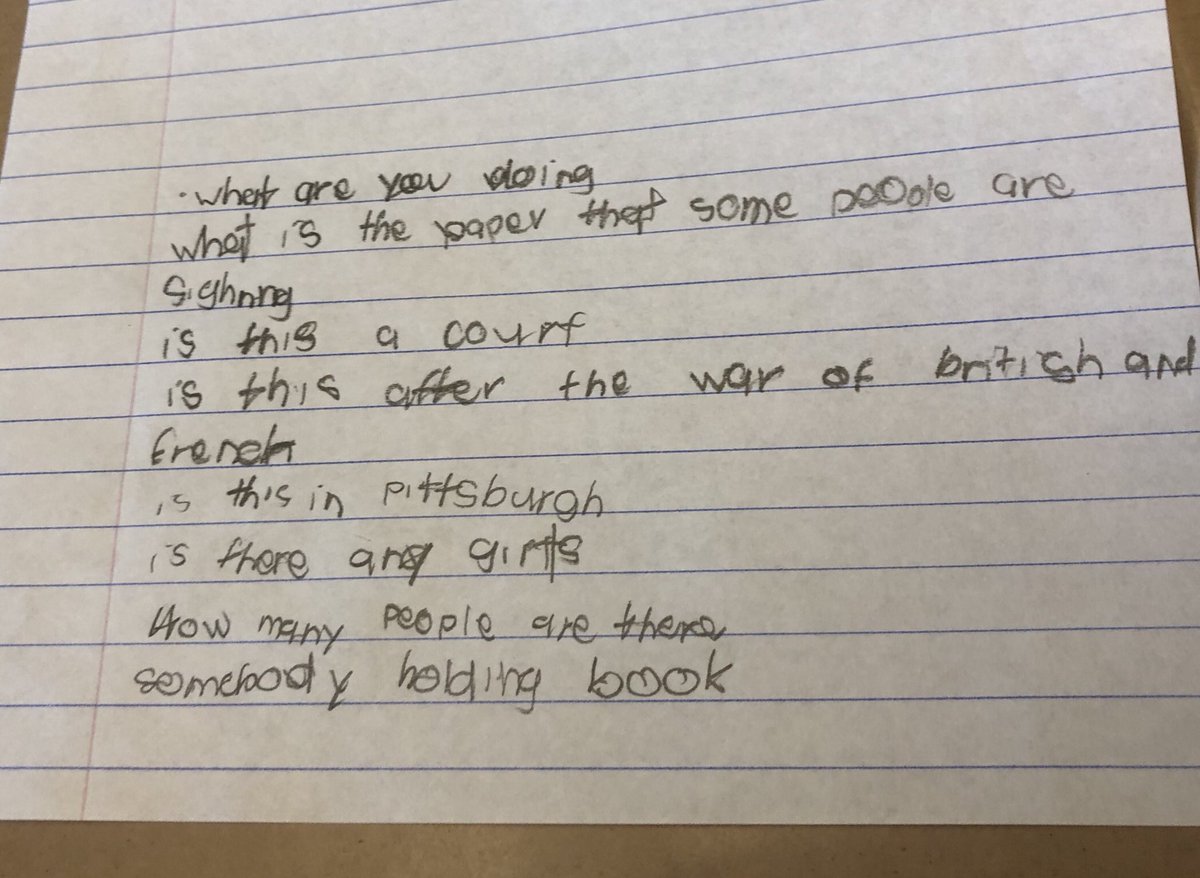 . what are you doing
what is the paper that some people are
sighning
is this a court
is this after the war of british and
french
is this in pittsburgh
is there any girls
How many people are there
somebody holding book